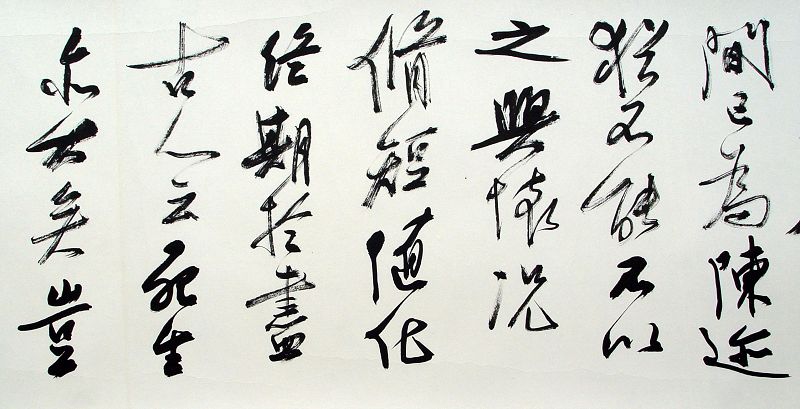 間已為陳迹
猶不能不以
之興懷況
脩短隨化
終期於盡
古人云死生
亦大矣豈